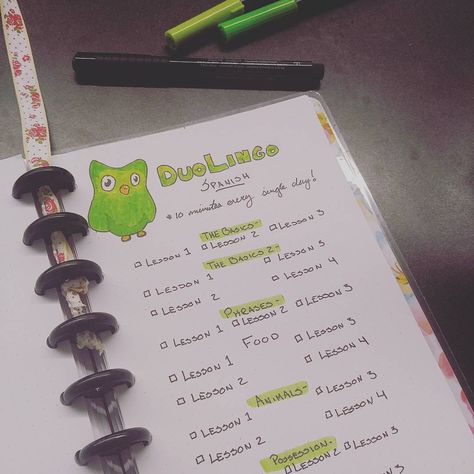 DUOLINGO
SPANISH
* 10 minutes every single day!
THE BASICS-
□ LESSON 1 □ LESSON 2 □ LESSON 3
THE BASICS 2-
□ LESSON 1 □ LESSON 3
□ LESSON 2 □ LESSON 4
PHRASES-
□ LESSON 1 □ LESSON 2 □ LESSON 3
FOOD
□ LESSON 1 □ LESSON 3
□ LESSON 2 □ LESSON 4
ANIMALS-
□ LESSON 1 □ LESSON 3
□ LESSON 2 □ LESSON 4
POSSESSION-
□ LESSON 2 □ LESSON 3